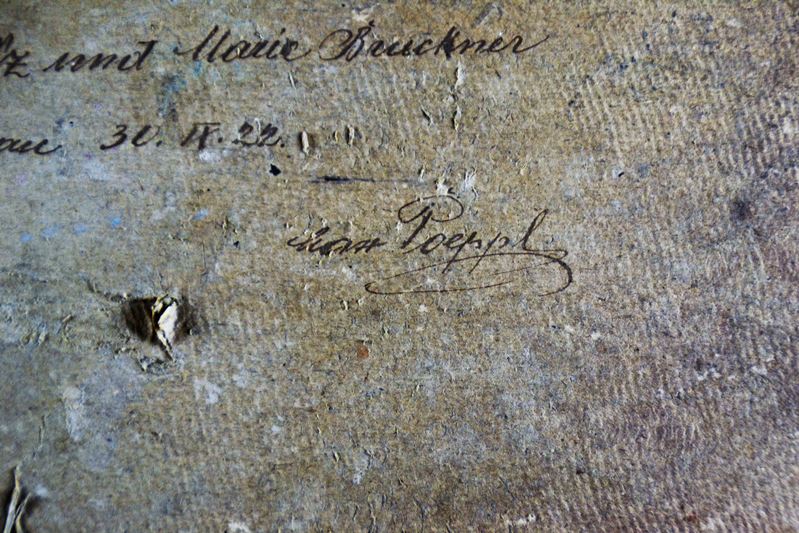 und Marie Bruckner
30. IX. 22.
Poeppl